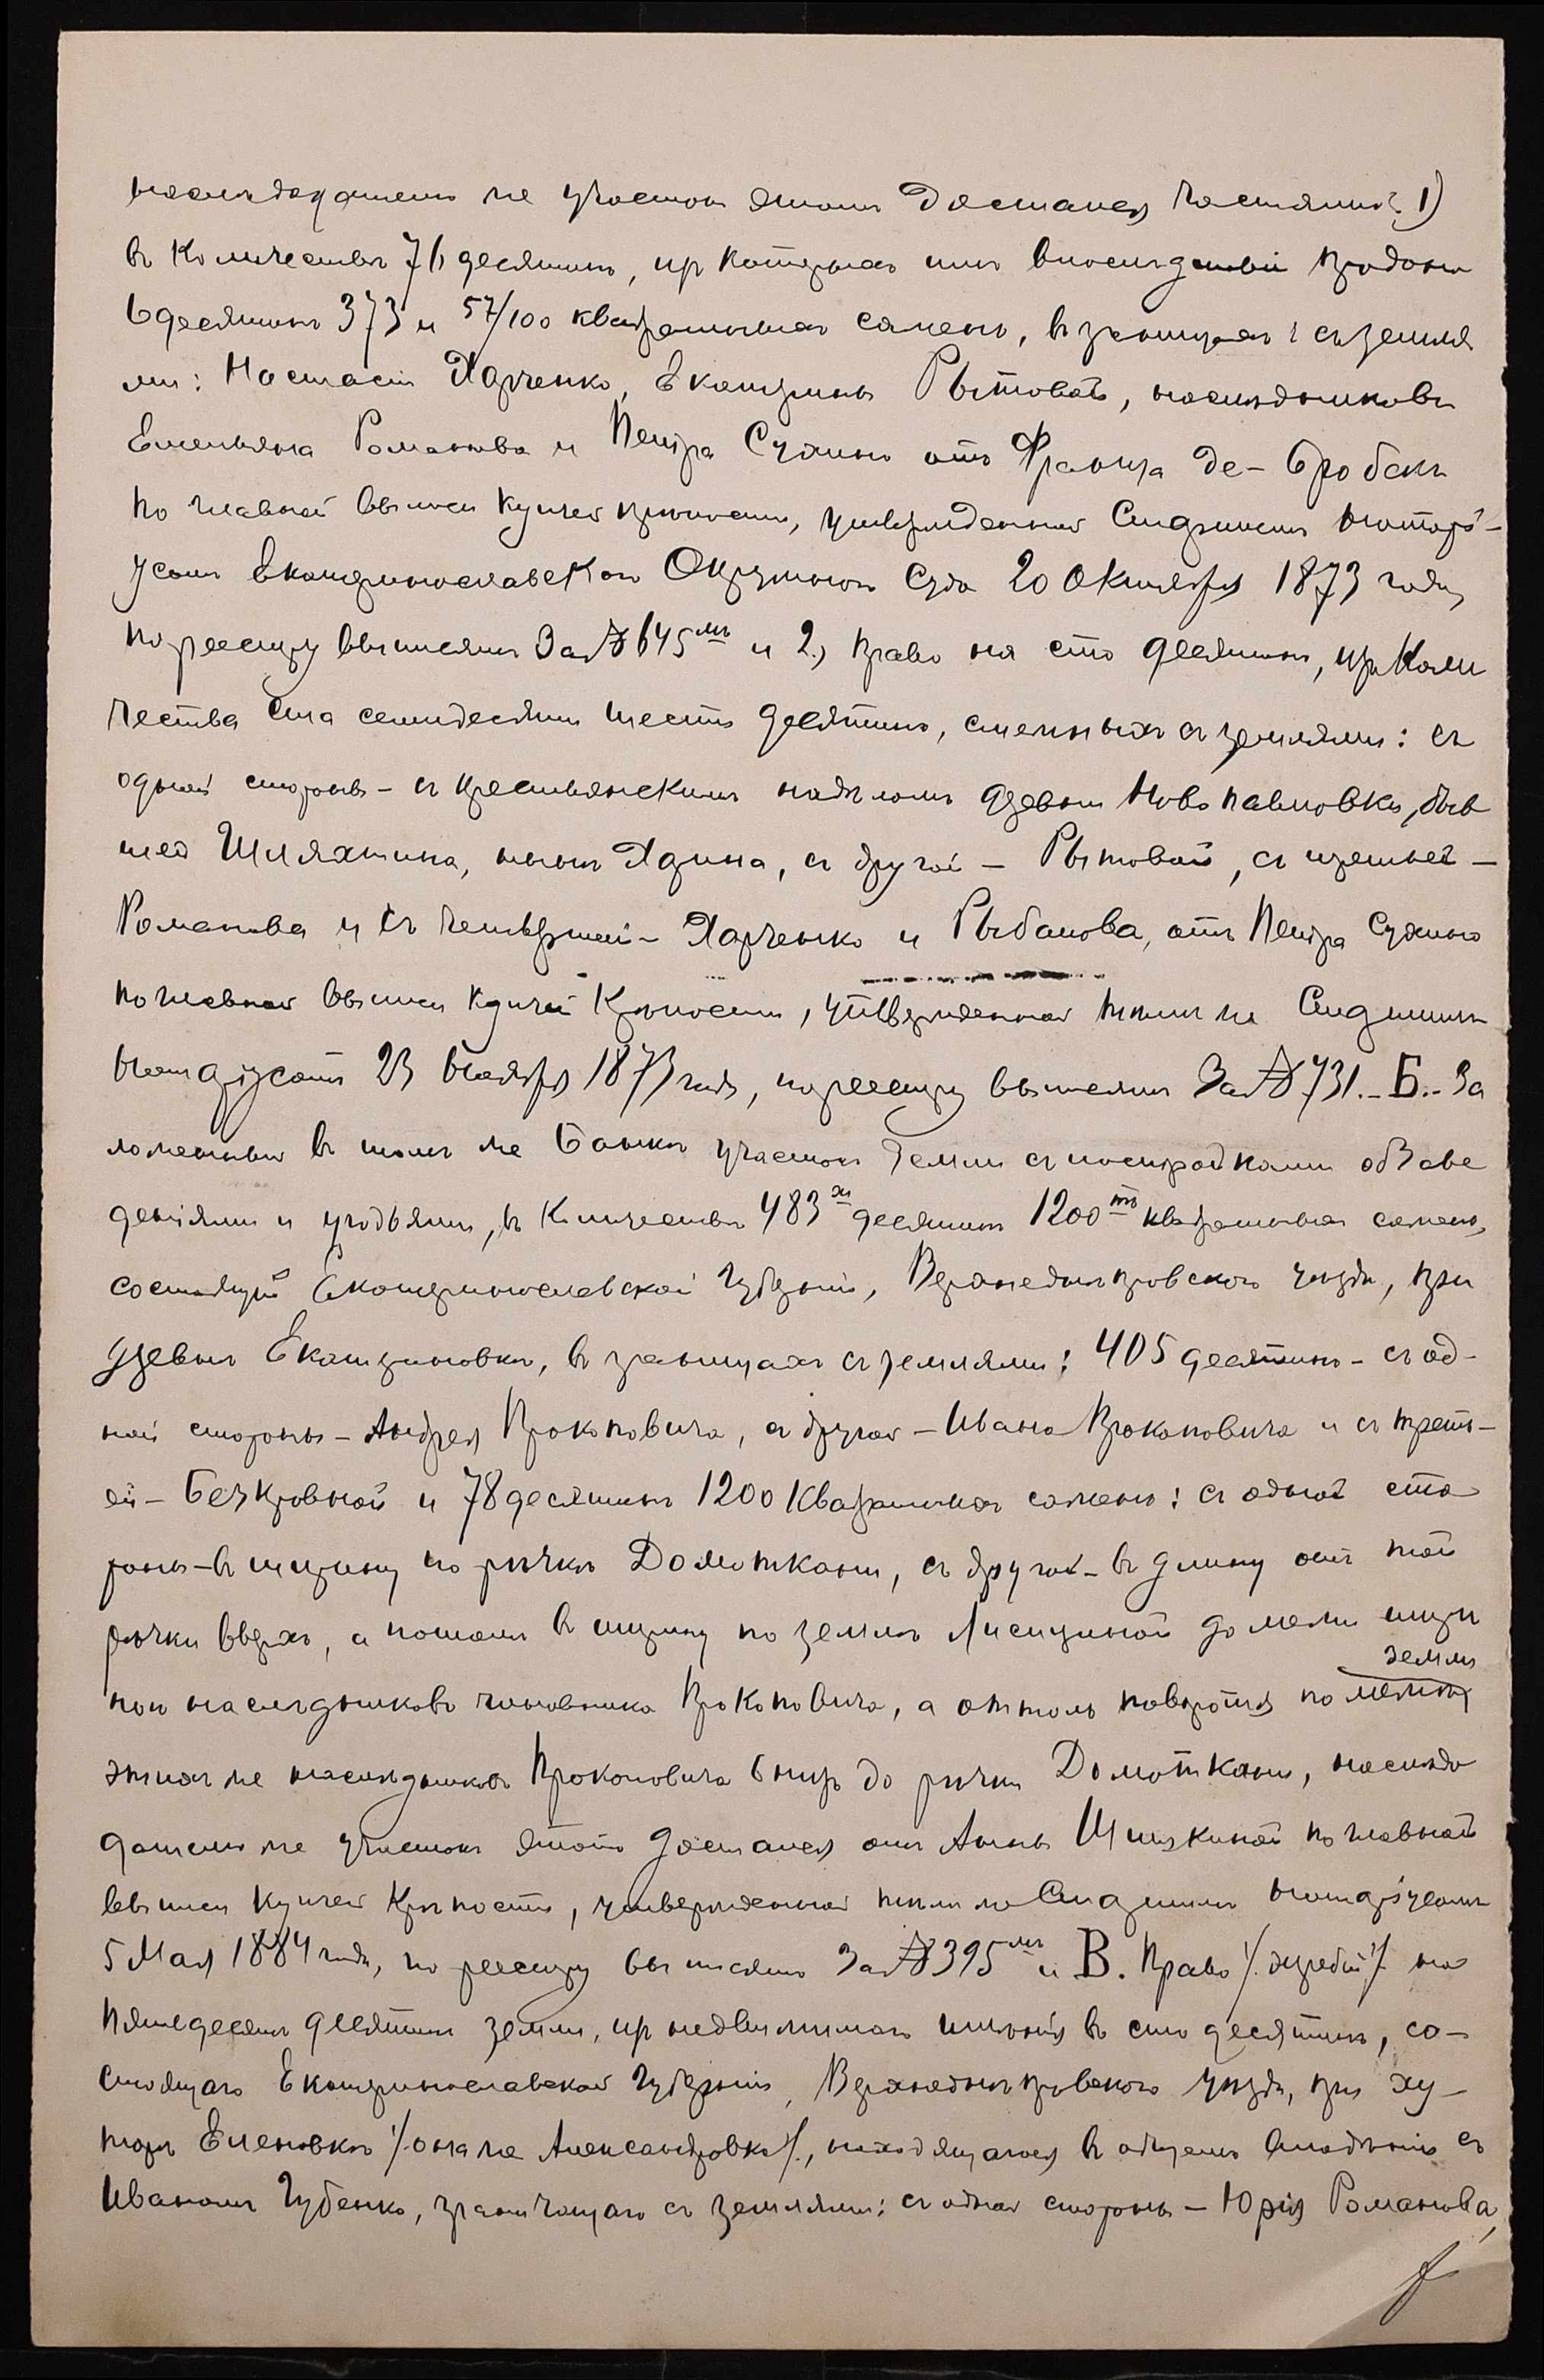 наследодателю же участокъ этотъ достался частями: 1)
въ количествѣ 76 десятинъ, изъ которыхъ имъ впослѣдствіи продано
6 десятинъ 373 и 57/100 квадратныхъ сажень, въ границахъ: съ земля
ми: Настасіи Харченко, Екатерины Рытовой, наслѣдниковъ
Емельяна Романова и Петра Сухино отъ Франца де-
по главной выписи купчей крѣпости, утвержденной Старшимъ Нотарі-
усомъ Екатеринославскаго Окружнаго Суда 20 Октября 1873 года,
по реестру выписями За № 645мъ и 2, право на сто десятинъ, изъ коли
чества ста семидесяти шести десятинъ, смежныхъ съ землями: съ
одной стороны - съ крестьянскимъ надѣломъ деревни Новопавловки, быв
шей Шляхтина, нынѣ, съ другой - Рытовой, съ третьей -
Романова и съ четвертой - Харченко и Рыбалова, отъ Петра Сухино
по главной выписи купчей крѣпости, утвержденной тѣмъ же Старшимъ
Нотаріусомъ 23 Ноября 1873 года, по реестру выписями За № 731. - Б. - За
ложенный въ томъ же Банкѣ участокъ земли съ постройками обзаве
деніями и угодьями, въ количествѣ 483хъ десятинъ 1200тъ квадратныхъ сажень,
состоящій Екатеринославской губерніи, Верхнеднѣпровскаго уѣзда, при
деревнѣ Екатериновкѣ, въ границахъ съ землями: 405 десятинъ - съ од-
ной стороны - Андрея Прокоповича, съ другой - Ивана Прокоповича и съ треть-
ей - Безкровной и 78 десятинъ 1200 квадратныхъ сажень: съ одной сто
роны - въ ширину по рѣчкѣ Домоткани, съ другой - въ длину отъ той
рѣчки вверхъ, а потомъ въ ширину по землѣ Лисицыной до межи
ной наслѣдниковъ чиновника Прокоповича, а оттоль поворотя по межѣ земли
этихъ же наслѣдниковъ Прокоповича внизъ до рѣчки Домоткани, наслѣдо
дателю же участокъ этотъ достался отъ Анны Шишкиной по главной
выписи купчей крѣпости, утвержденной тѣмъ же Старшимъ Нотаріусомъ
5 Мая 1884 года, по реестру выписями За № 395мъ и В. Право /.жребій/. на
пятьдесятъ десятинъ земли, изъ недвижимаго имѣнія въ сто десятинъ, со-
стоящаго Екатеринославской губерніи, Верхнеднѣпровскаго уѣзда, при ху-
торѣ Еленовкѣ /.она же Александровка/., находящагося въ общемъ владѣніи съ
Иваномъ Губенко, граничащаго съ землями: съ одной стороны - Юрія Романова,